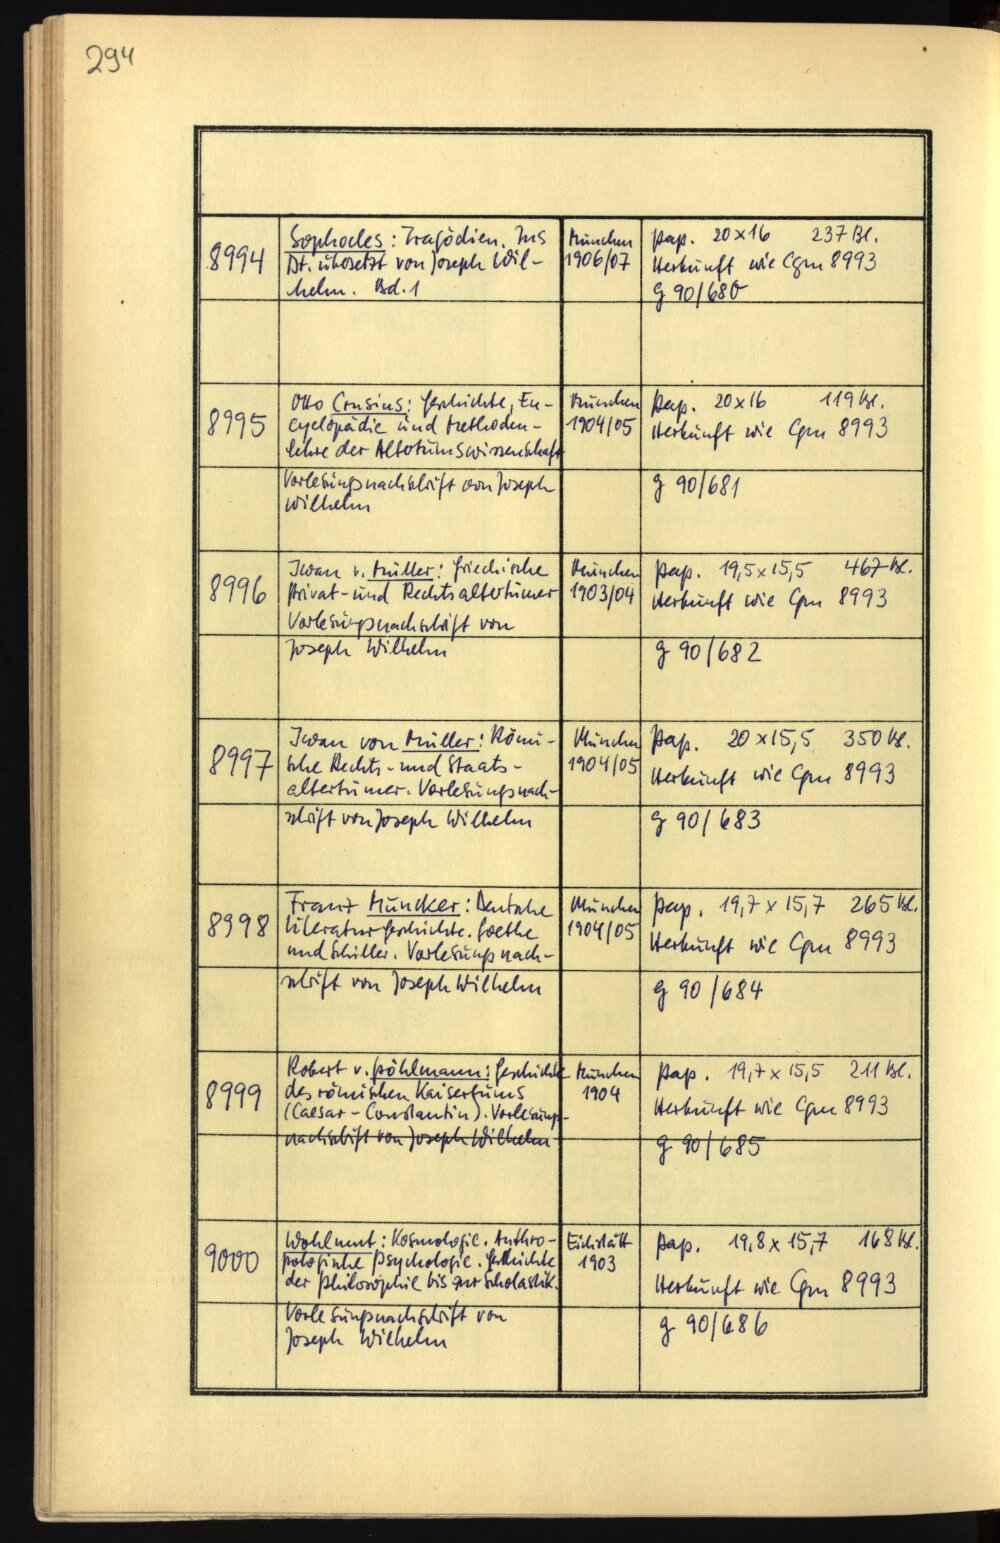 294
8994
Sophocles: Tragödien. Ins
Dt. übersetzt von Joseph Wil-
helm. Bd. 1
München
1906/07
Pap. 20 x 16 237 Bl.
Herkunft wie Cgm 8993
G 90/680
8995
Otto Crusius: Geschichte, En-
cyclopädie und Methoden-
lehre der Altertumswissenschaft
Vorlesungsnachschrift von Joseph
Wilhelm
München
1904/05
Pap. 20 x 16 119 Bl.
Herkunft wie Cgm 8993
G 90/681
8996
Iwan v. Müller: Griechische
Privat- und Rechtsaltertümer
Vorlesungsnachschrift von
Joseph Wilhelm
München
1903/04
Pap. 19,5 x 15,5 467 Bl.
Herkunft wie Cgm 8993
G 90/682
8997
Iwan von Müller: Römi-
sche Rechts- und Staats-
altertümer. Vorlesungsnach-
schrift von Joseph Wilhelm
München
1904/05
Pap. 20 x 15,5 350 Bl.
Herkunft wie Cgm 8993
G 90/683
8998
Franz Muncker: Deutsche
Literaturgeschichte. Goethe
und Schiller. Vorlesungsnach-
schrift von Joseph Wilhelm
München
1904/05
Pap. 19,7 x 15,7 265 Bl.
Herkunft wie Cgm 8993
G 90/684
8999
Robert v. Pöhlmann: Geschichte
des römischen Kaisertums
(Caesar - Constantin). Vorlesungs-
nachschrift von Joseph Wilhelm
München
1904
Pap. 19,7 x 15,5 211 Bl.
Herkunft wie Cgm 8993
G 90/685
9000
Wohlmut: Kosmologie. Anthro-
pologische Psychologie. Geschichte
der Philosophie bis zur Scholastik.
Vorlesungsnachschrift von
Joseph Wilhelm
Eichstätt
1903
Pap. 19,8 x 15,7 168 Bl.
Herkunft wie Cgm 8993
G 90/686